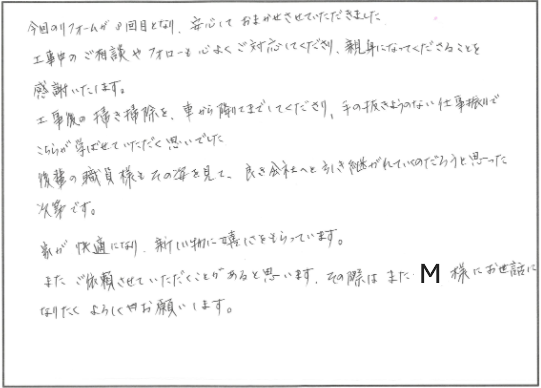 今回のリフォームが8回目となり、安心しておまかせさせていただきました
工事中のご相談やフォローも心よくご対応してくださり、親身になってくださることを
感謝いたします。
工事後の掃き掃除を、車から降りてまでしてくださり、手の抜きようのない仕事振りで
こちらが学ばせていただく思いでした
後輩の職員様もその姿を見て、良き会社へと引き継がれていくのだろうと思った
次第です。
家が快適になり、新しい物に嬉しさをもらっています。
またご依頼させていただくことがあると思います、その際はまた M 様にお世話に
なりたくよろしくお願いします。